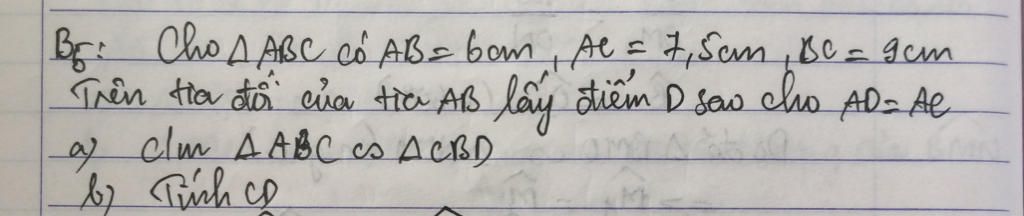 B5: Cho △ABC có AB = 6cm, AC = 7,5cm, BC = 9cm
Trên tia đối của tia AB lấy điểm D sao cho AD = AC
a) c/m △ABC ∽ △CBD
b) Tính CD